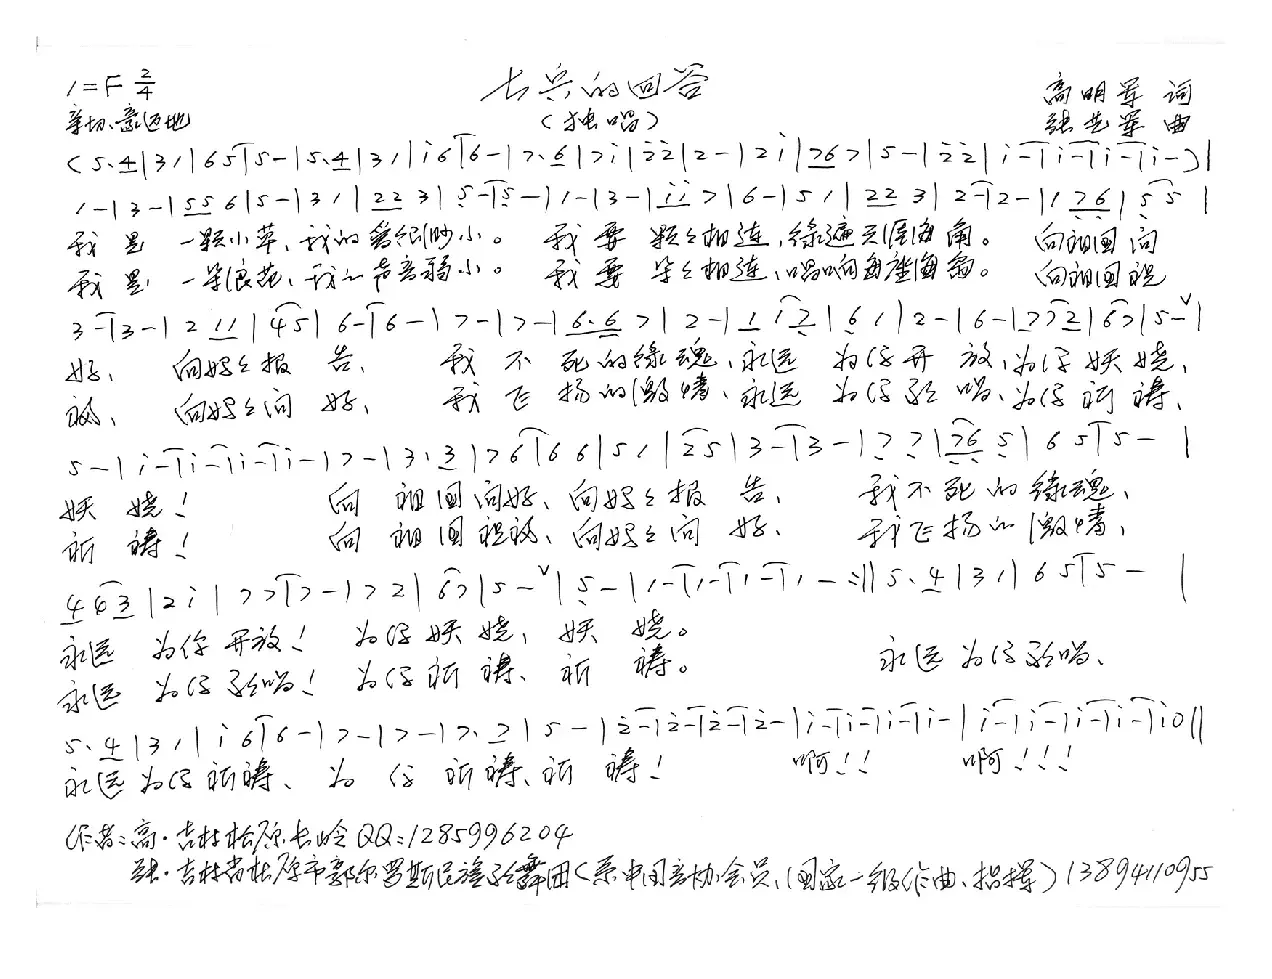 1=F 2/4
士兵的回答
高明军 词
亲切、豪迈地
(独唱)
张艺军 曲
(5. 4|31|65|5-|5. 4|31|i6|6-|7. 6|7i|22|2-|2i|767|5-|22|i-|i-|i-|i-)|
1-|3-|556|5-|31|223|5-|5-|1-|3-|ii7|6-|51|223|2-|2-|176|55|
我是 一颗小草、我的 很渺小。 我要 颗々相连,绿遍天涯海角。 向祖国问
我是 一朵浪花、我的声音弱小。 我要 朵々相连、唱响每座海岛。 向祖国祝
3-|3-|211|45|6-|6-|7-|7-|6.67|2-|1i7|61|2-|6-|772|67|5-|
好、 向妈々报 告、 我不 死的绿魂、永远 为你开 放,为你妖娆,
福、 向妈々问 好、 我飞 扬的激情、永远 为你歌 唱、为你祈祷、
5-|i-|i-|i-|i-|7-|3.3|76|66|51|25|3-|3-|77|765|65|5-|
妖娆! 向祖国问好、向妈々报 告、 我不死的绿魂、
祈祷! 向祖国祝福、向妈々问 好、 我飞扬的激情、
443|2i|77|7-|72|67|5-|5-|1-|1-|1-|1-:||5. 4|31|65|5-|
永远 为你开放! 为你妖娆,妖 娆。
永远 为你歌唱! 为你祈祷、祈 祷。 永远为你歌唱、
5. 4|31|i6|6-|7-|7-|7. 7|5-|2-|2-|2-|2-|i-|i-|i-|i-|i-|i-|i-|i-|i0||
永远为你祈祷、为 你 祈祷、祈 祷! 啊!! 啊!!!
作者:高·吉林松原长岭QQ:1285996204
张·吉林省松原市郭尔罗斯民族歌舞团(系中国音协会员、国家一级作曲、指挥)13894110955